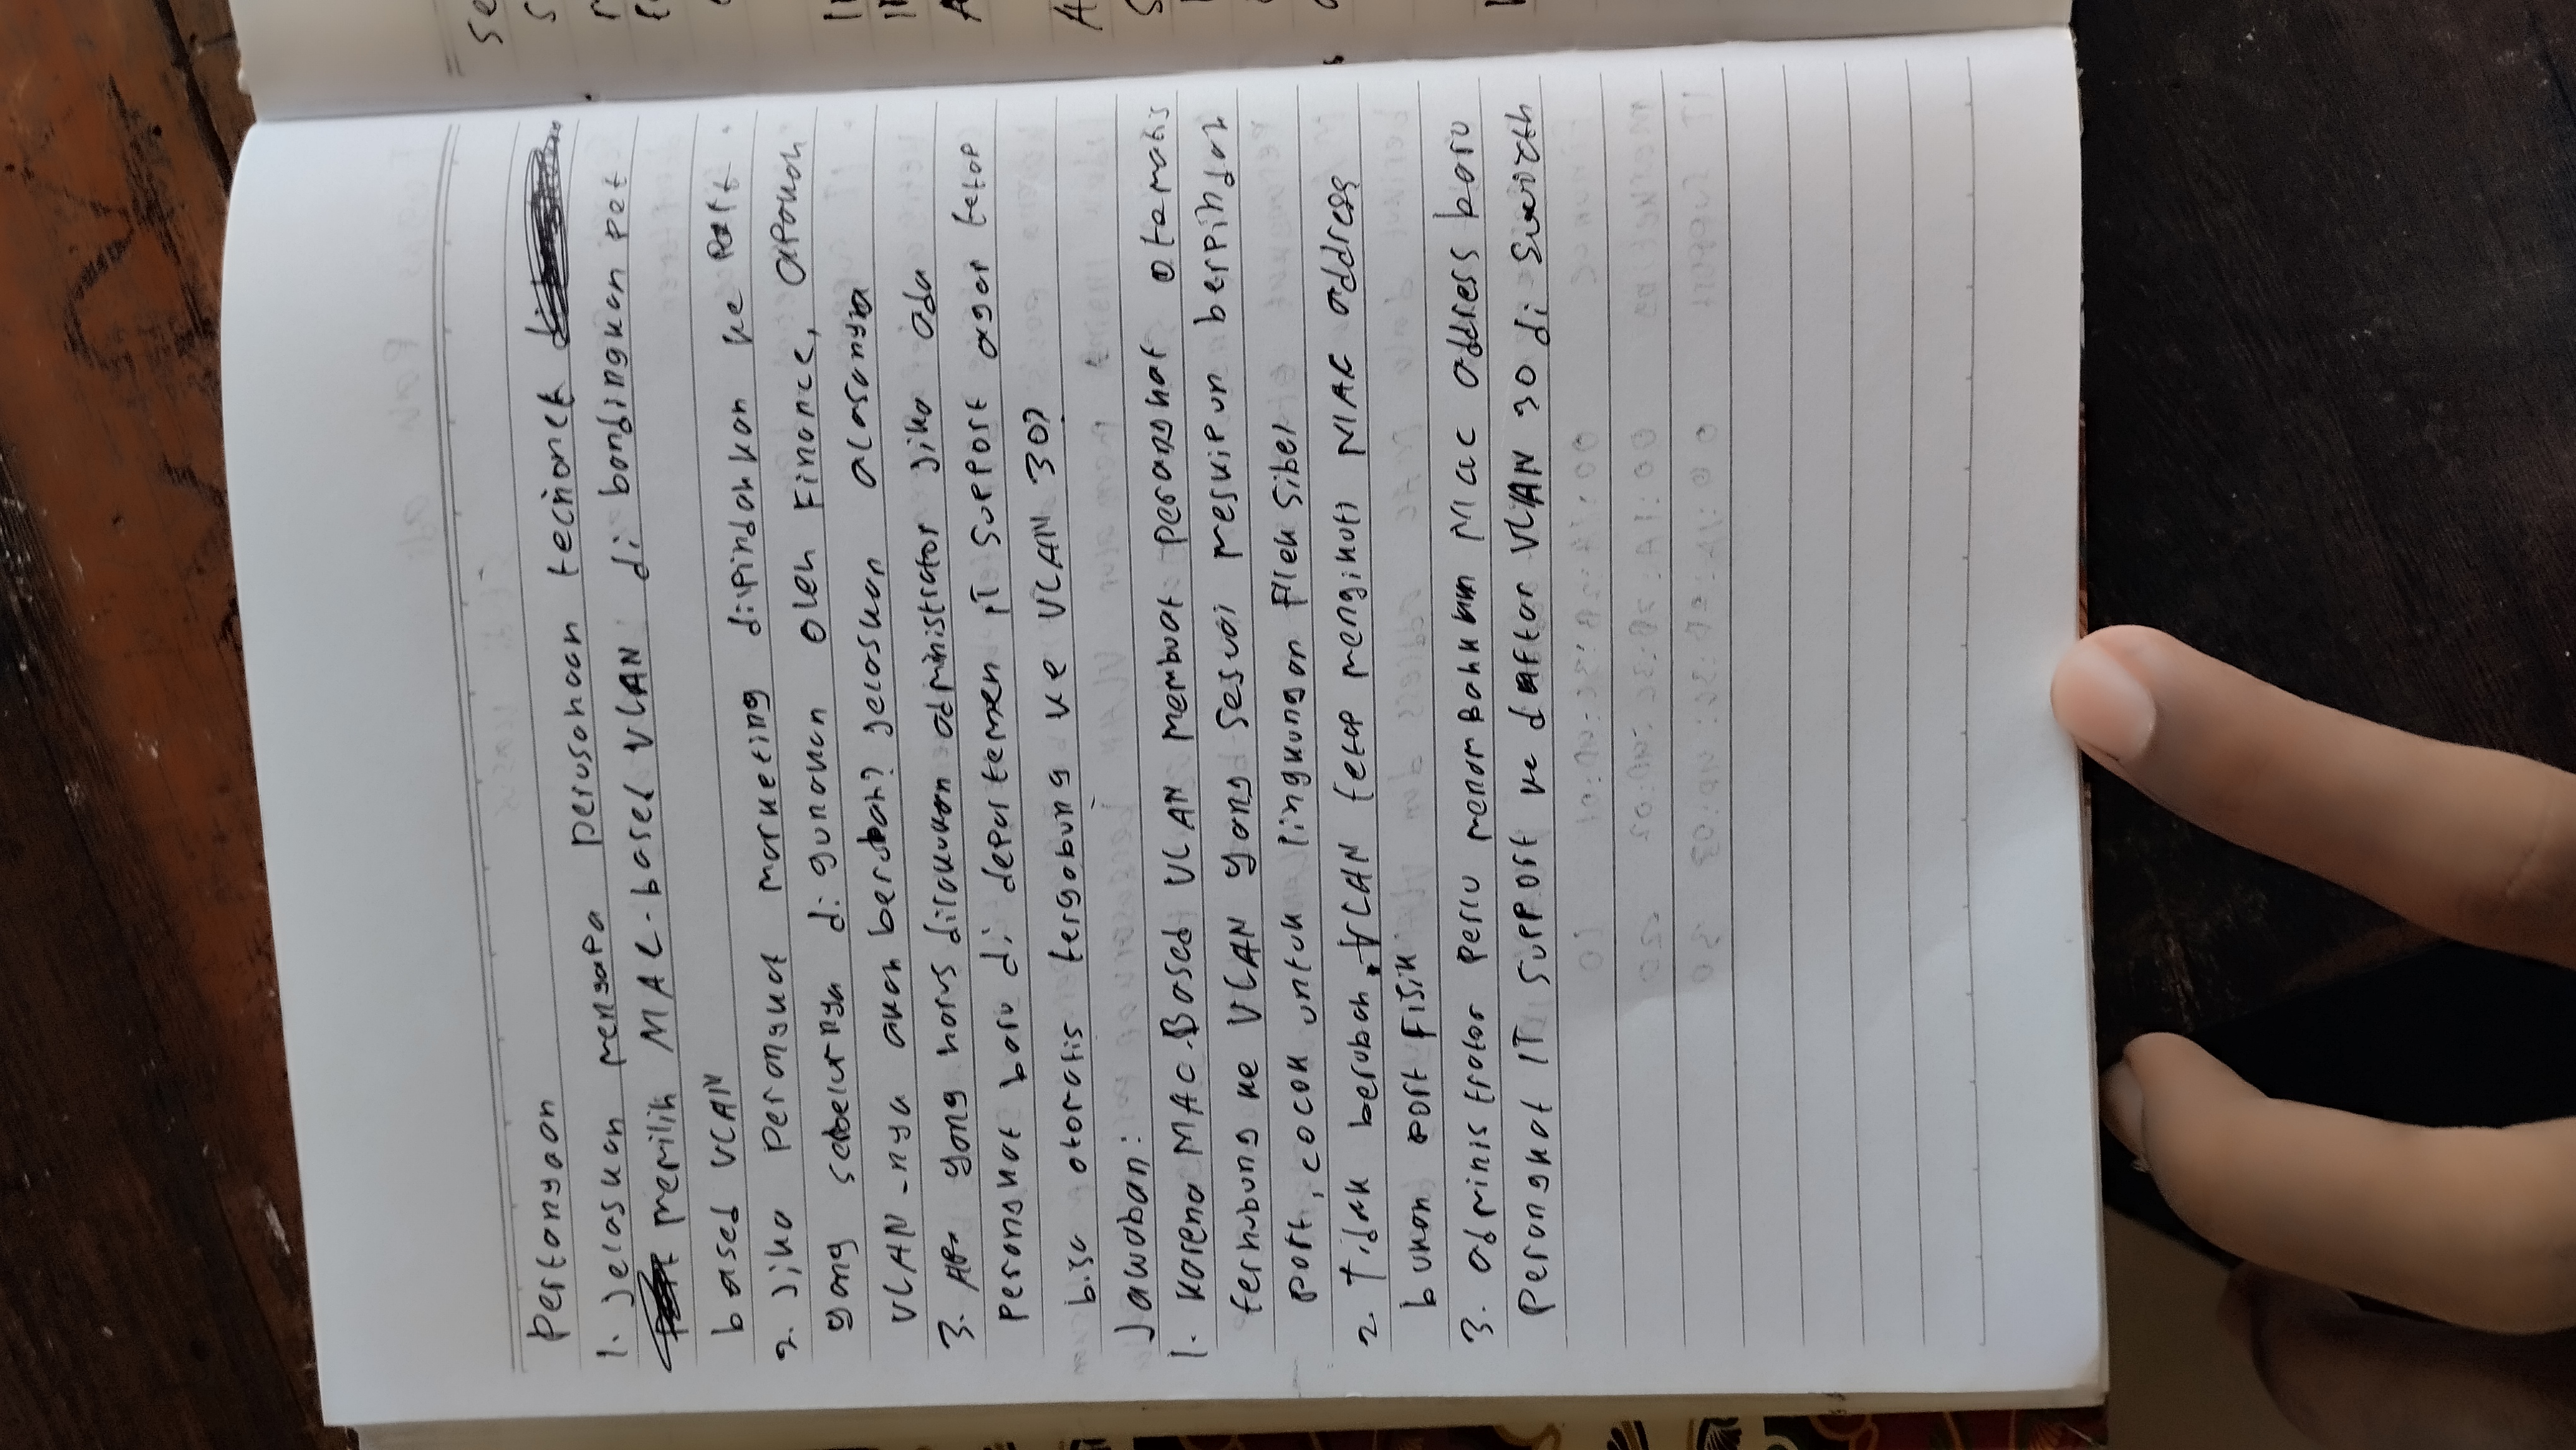 Pertanyaan
1. Jelaskan mengapa perusahaan tecinonet
memilih MAC-based VLAN di bandingkan pot
based VLAN
2. Jika perangkat marketing dipindahkan ke Port
yang sebelumnya di gunakan oleh Finance, apakah
VLAN-nya akan berubah? jelaskan alasanya
3. Apa yang harus dilakukan administrator jika ada
perangkat baru di departemen IT Support agar tetap
bisa otomatis tergabung ke VLAN 30?
Jawaban:
1. karena MAC-Based VLAN membuat perangkat otomatis
terhubung ke VLAN yang sesuai meskipun berpindah
port, cocok untuk lingkungan fleksibel
2. Tidak berubah. VLAN tetap mengikuti MAC address
bukan port fisik
3. administrator perlu menambahkan Mac address baru
perangkat IT Support ke daftar VLAN 30 di Switch